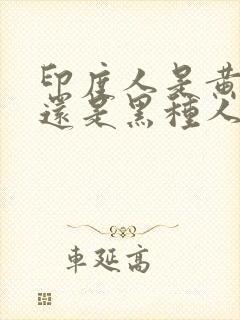 印度人是黃
還是黑種人
車延高